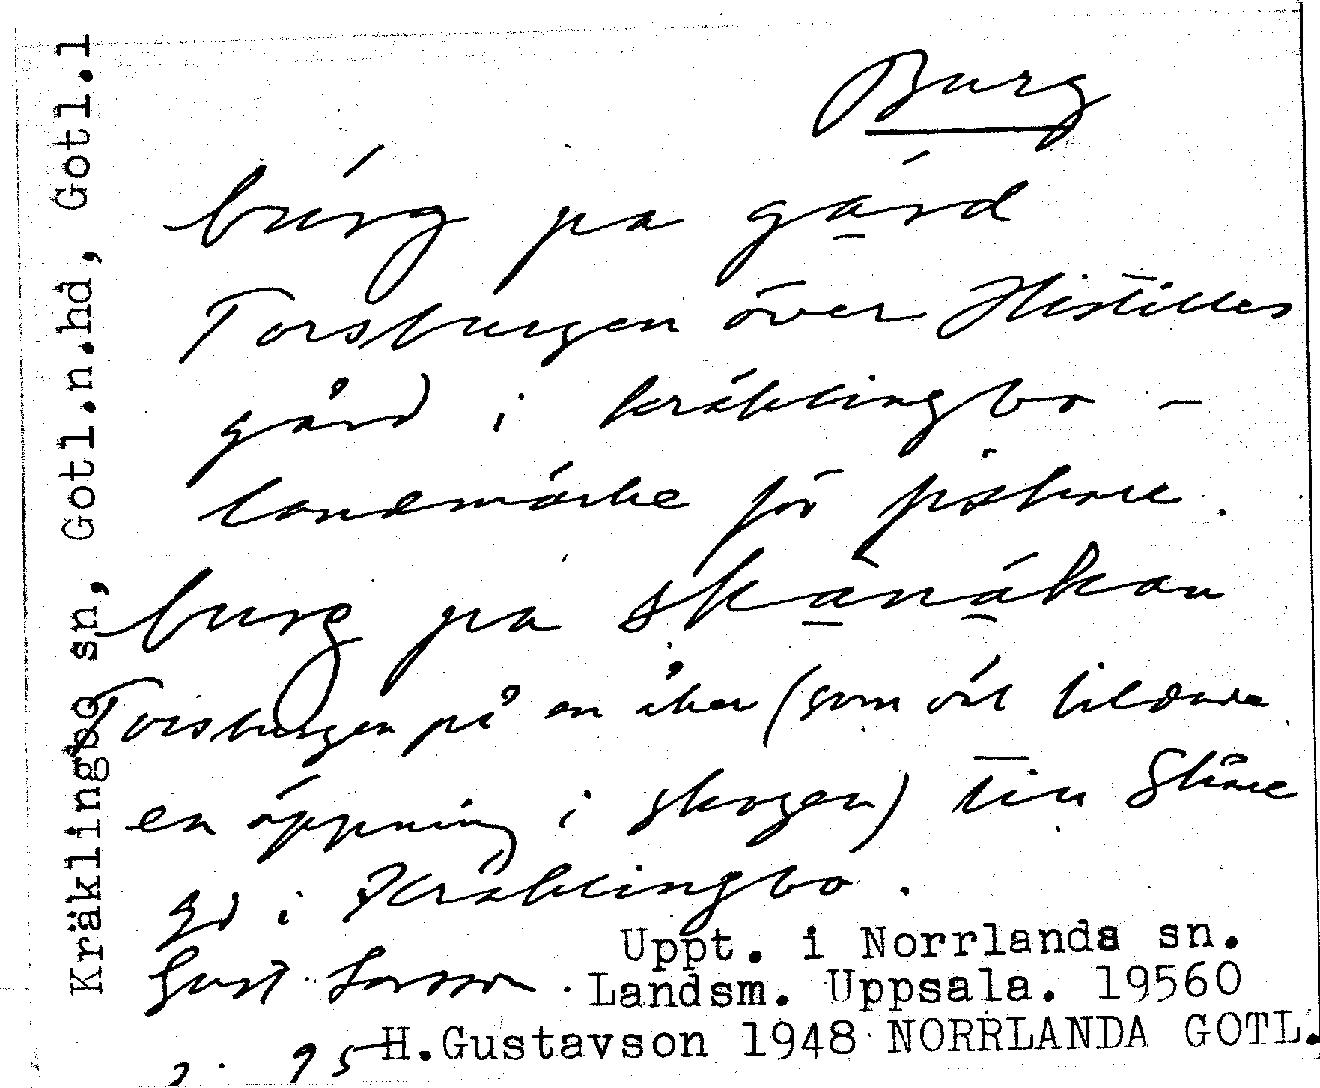 Kräklingbo sn, Gotl.n.hd, Gotl.l
Burg
burg pa gard
Torsburgen över Histilles
gård i Kräklingbo –
landmärke för fiskare.
burg pa skanakan
Torsburgen på en åker (som där bildade
en öppning i skogen) till
gd i Kräklingbo.
Gust. Larsson.
Uppt. i Norrlanda sn.
Landsm. Uppsala. 19560
H.Gustavson 1948 NORRLANDA GOTL.
95